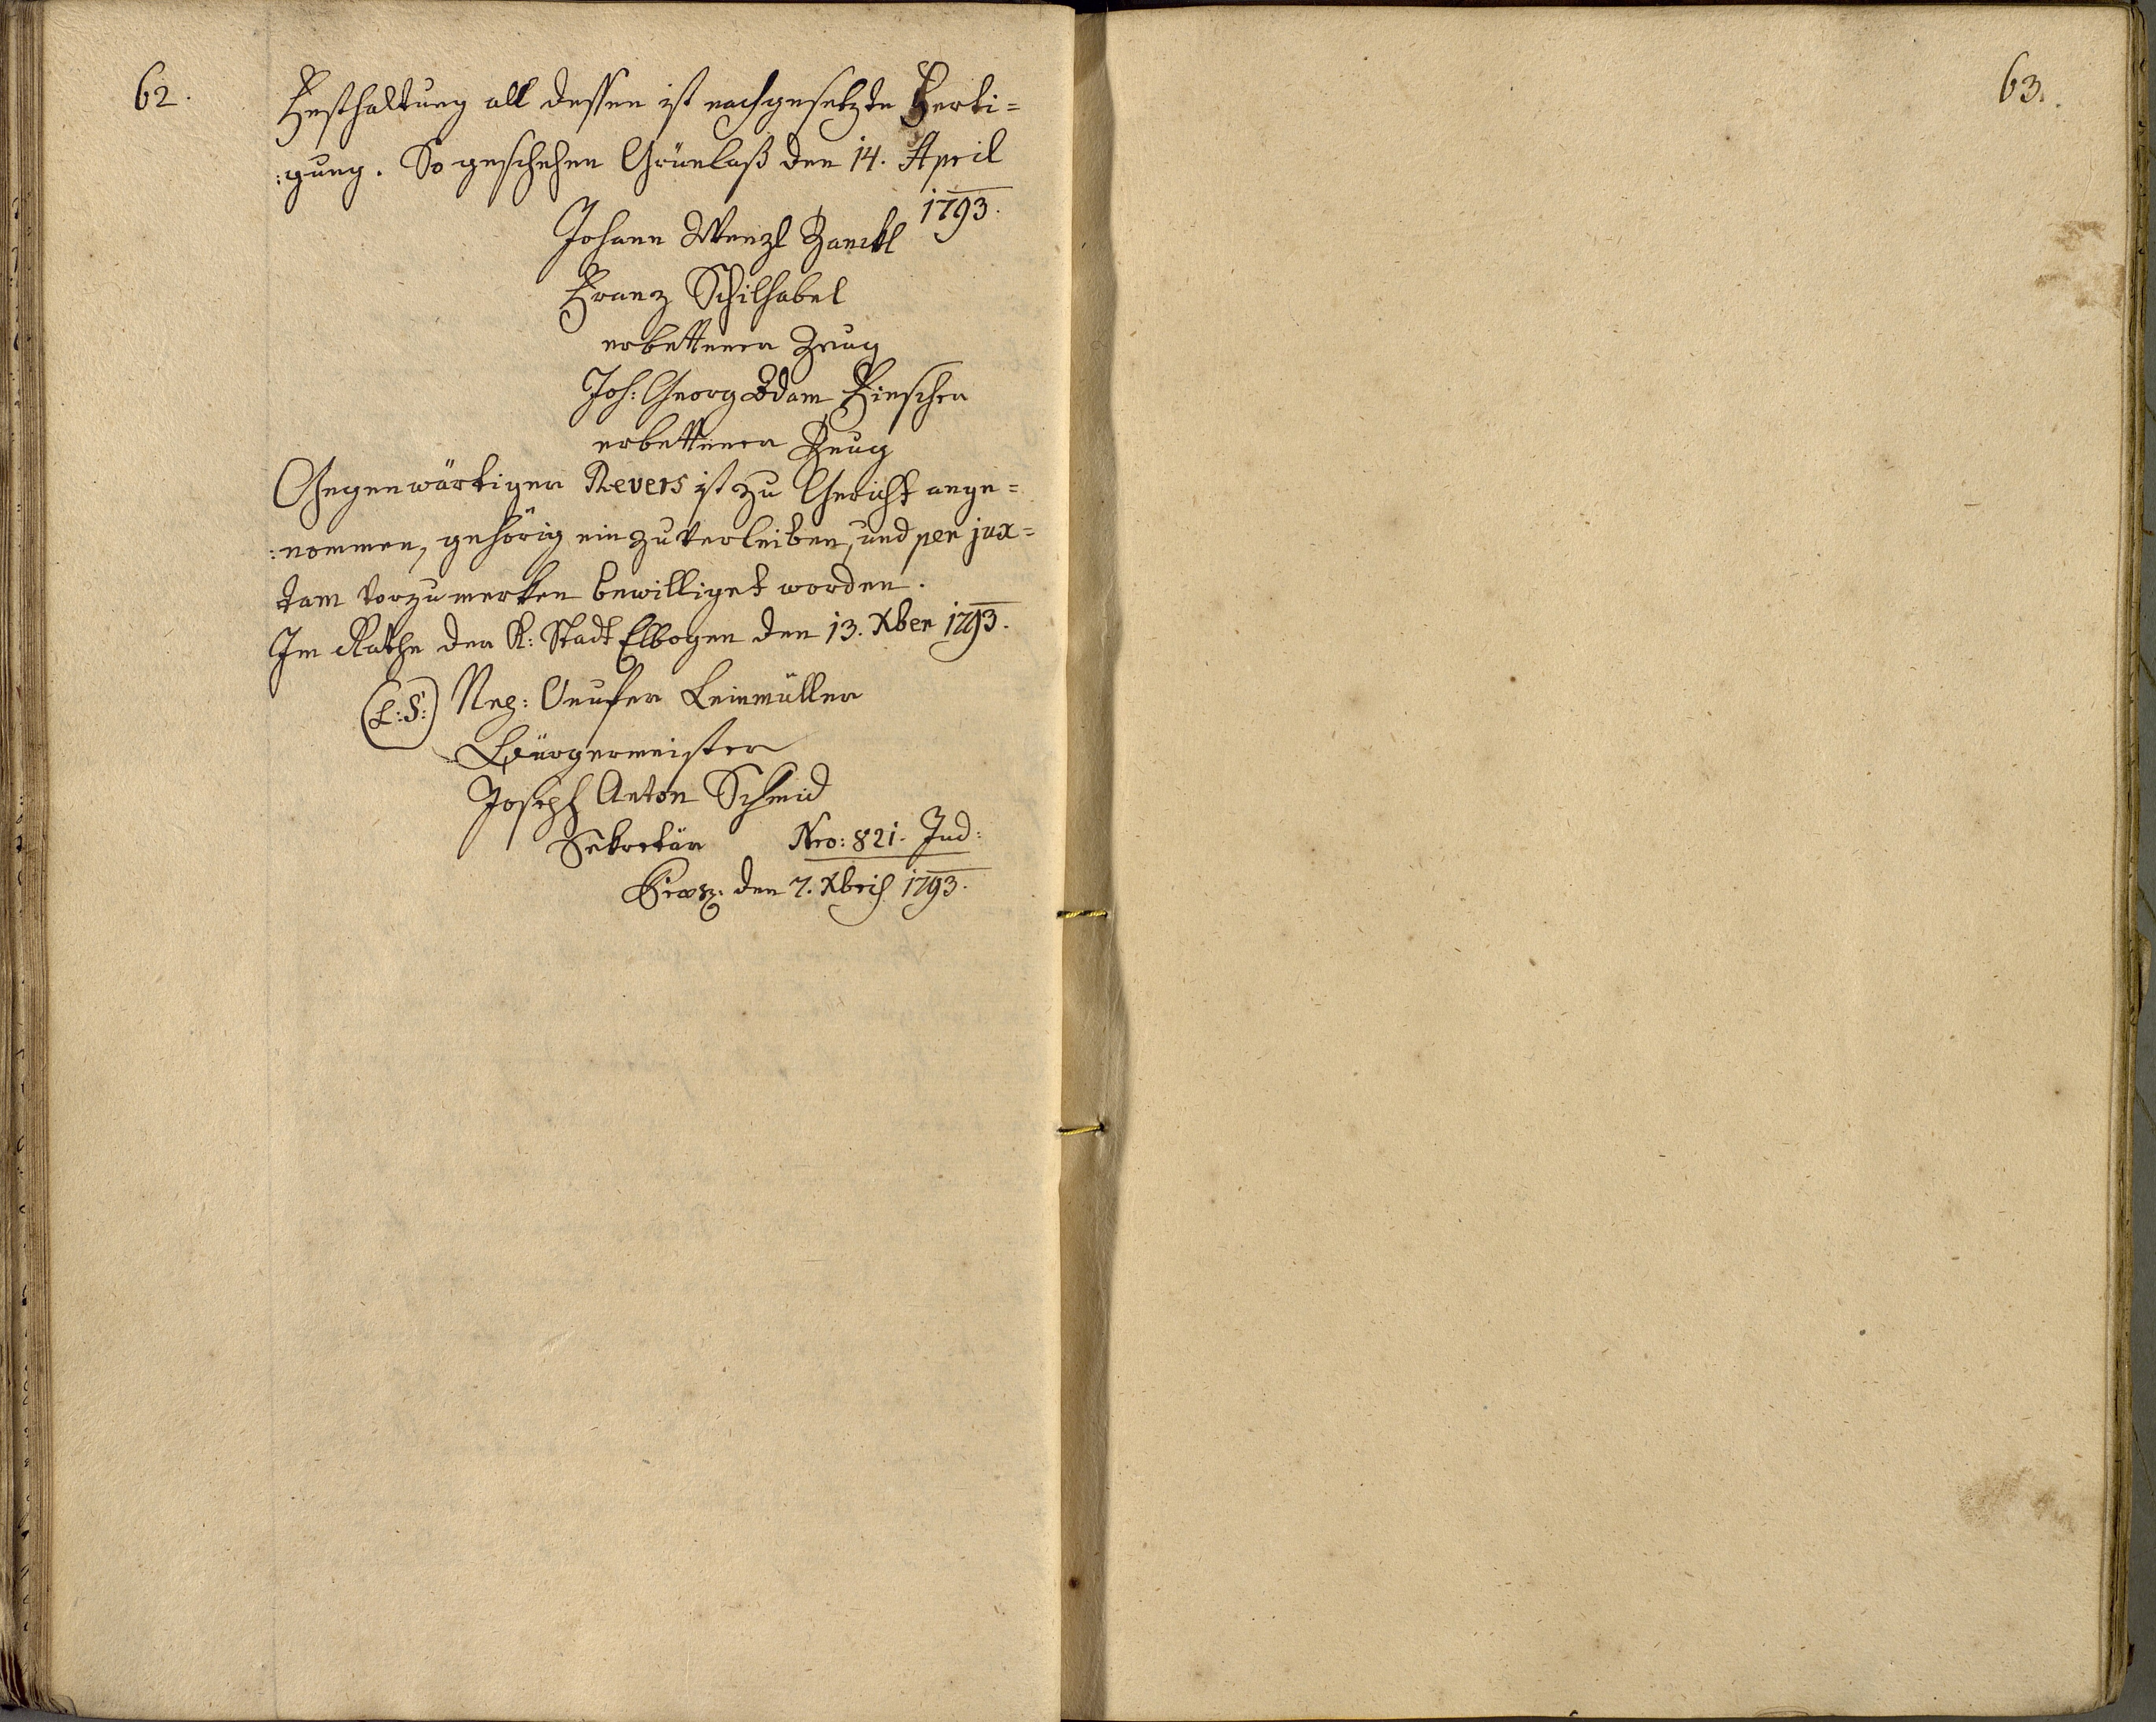 62.
Festhaltung all dessen ist nachgesetzte Ferti=
:gung. So geschehen Grünlaß den 14. April
1793.
Johann Wenzl Zanckl
Franz Schilhabel
erbettener Zeug
Joh: Georg Adam Fischer
erbettener Zeug
Gegenwärtiger Revers ist zu Gericht ange=
:nommen, gehörig einzuverleiben, und per jux=
tam vorzumerken bewilliget worden.
Im Rathe der K: Stadt Elbogen den 13. Xber 1793.
(L:S:) Leinmüller
Bürgermeister
Joseph Anton Schmid
Sekretär Nro: 821. Jud:
den 7. Xbris 1793.
63.